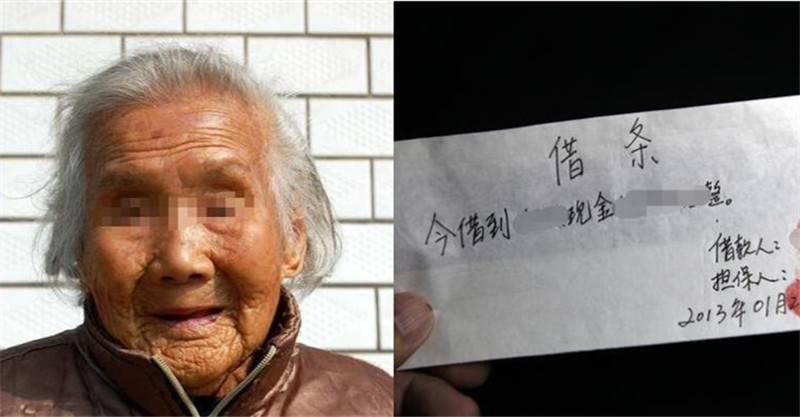 借条
今借到 现金 整。
借款人：
担保人：
2013年01月2